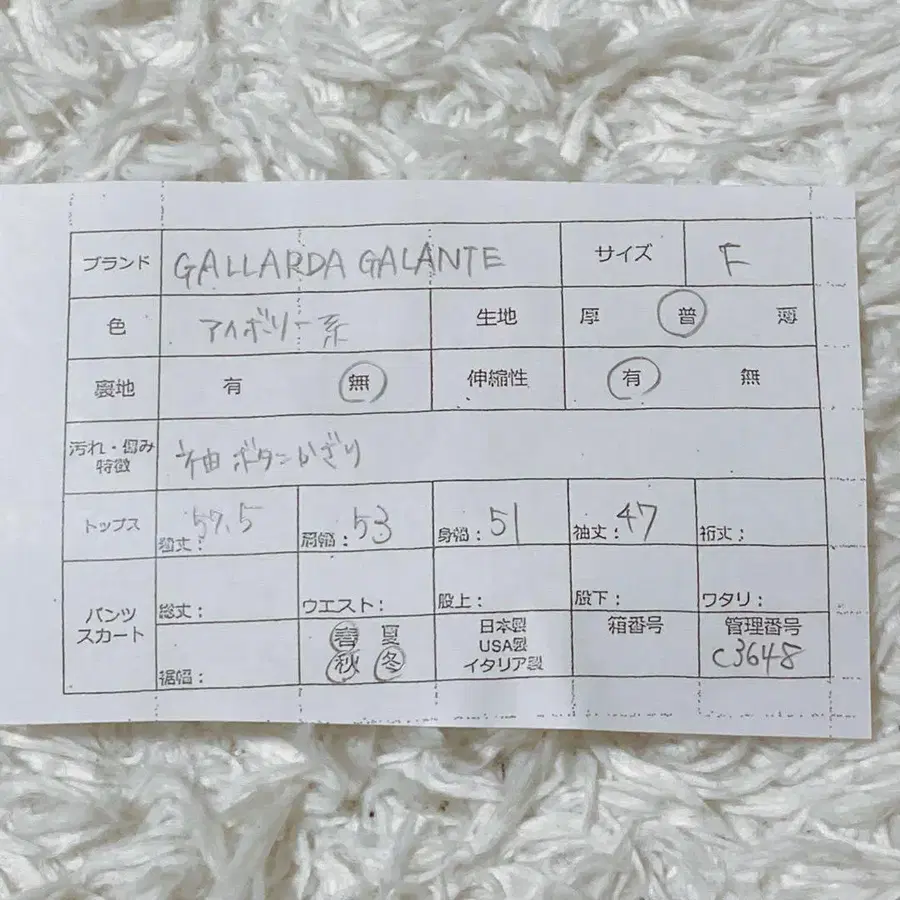 ブランド GALLARDA GALANTE サイズ F
色 アイボリー系 生地 厚 普 薄
裏地 有 無 伸縮性 有 無
汚れ・傷み
特徴 袖ボタンかざり
トップス 総丈: 57.5 肩幅: 53 身幅: 51 袖丈: 47 裄丈:
パンツ
スカート
総丈: ウエスト: 股上: 股下: ワタリ:
裾幅:
春 夏
秋 冬
日本製
USA製
イタリア製
箱番号
管理番号
C3648